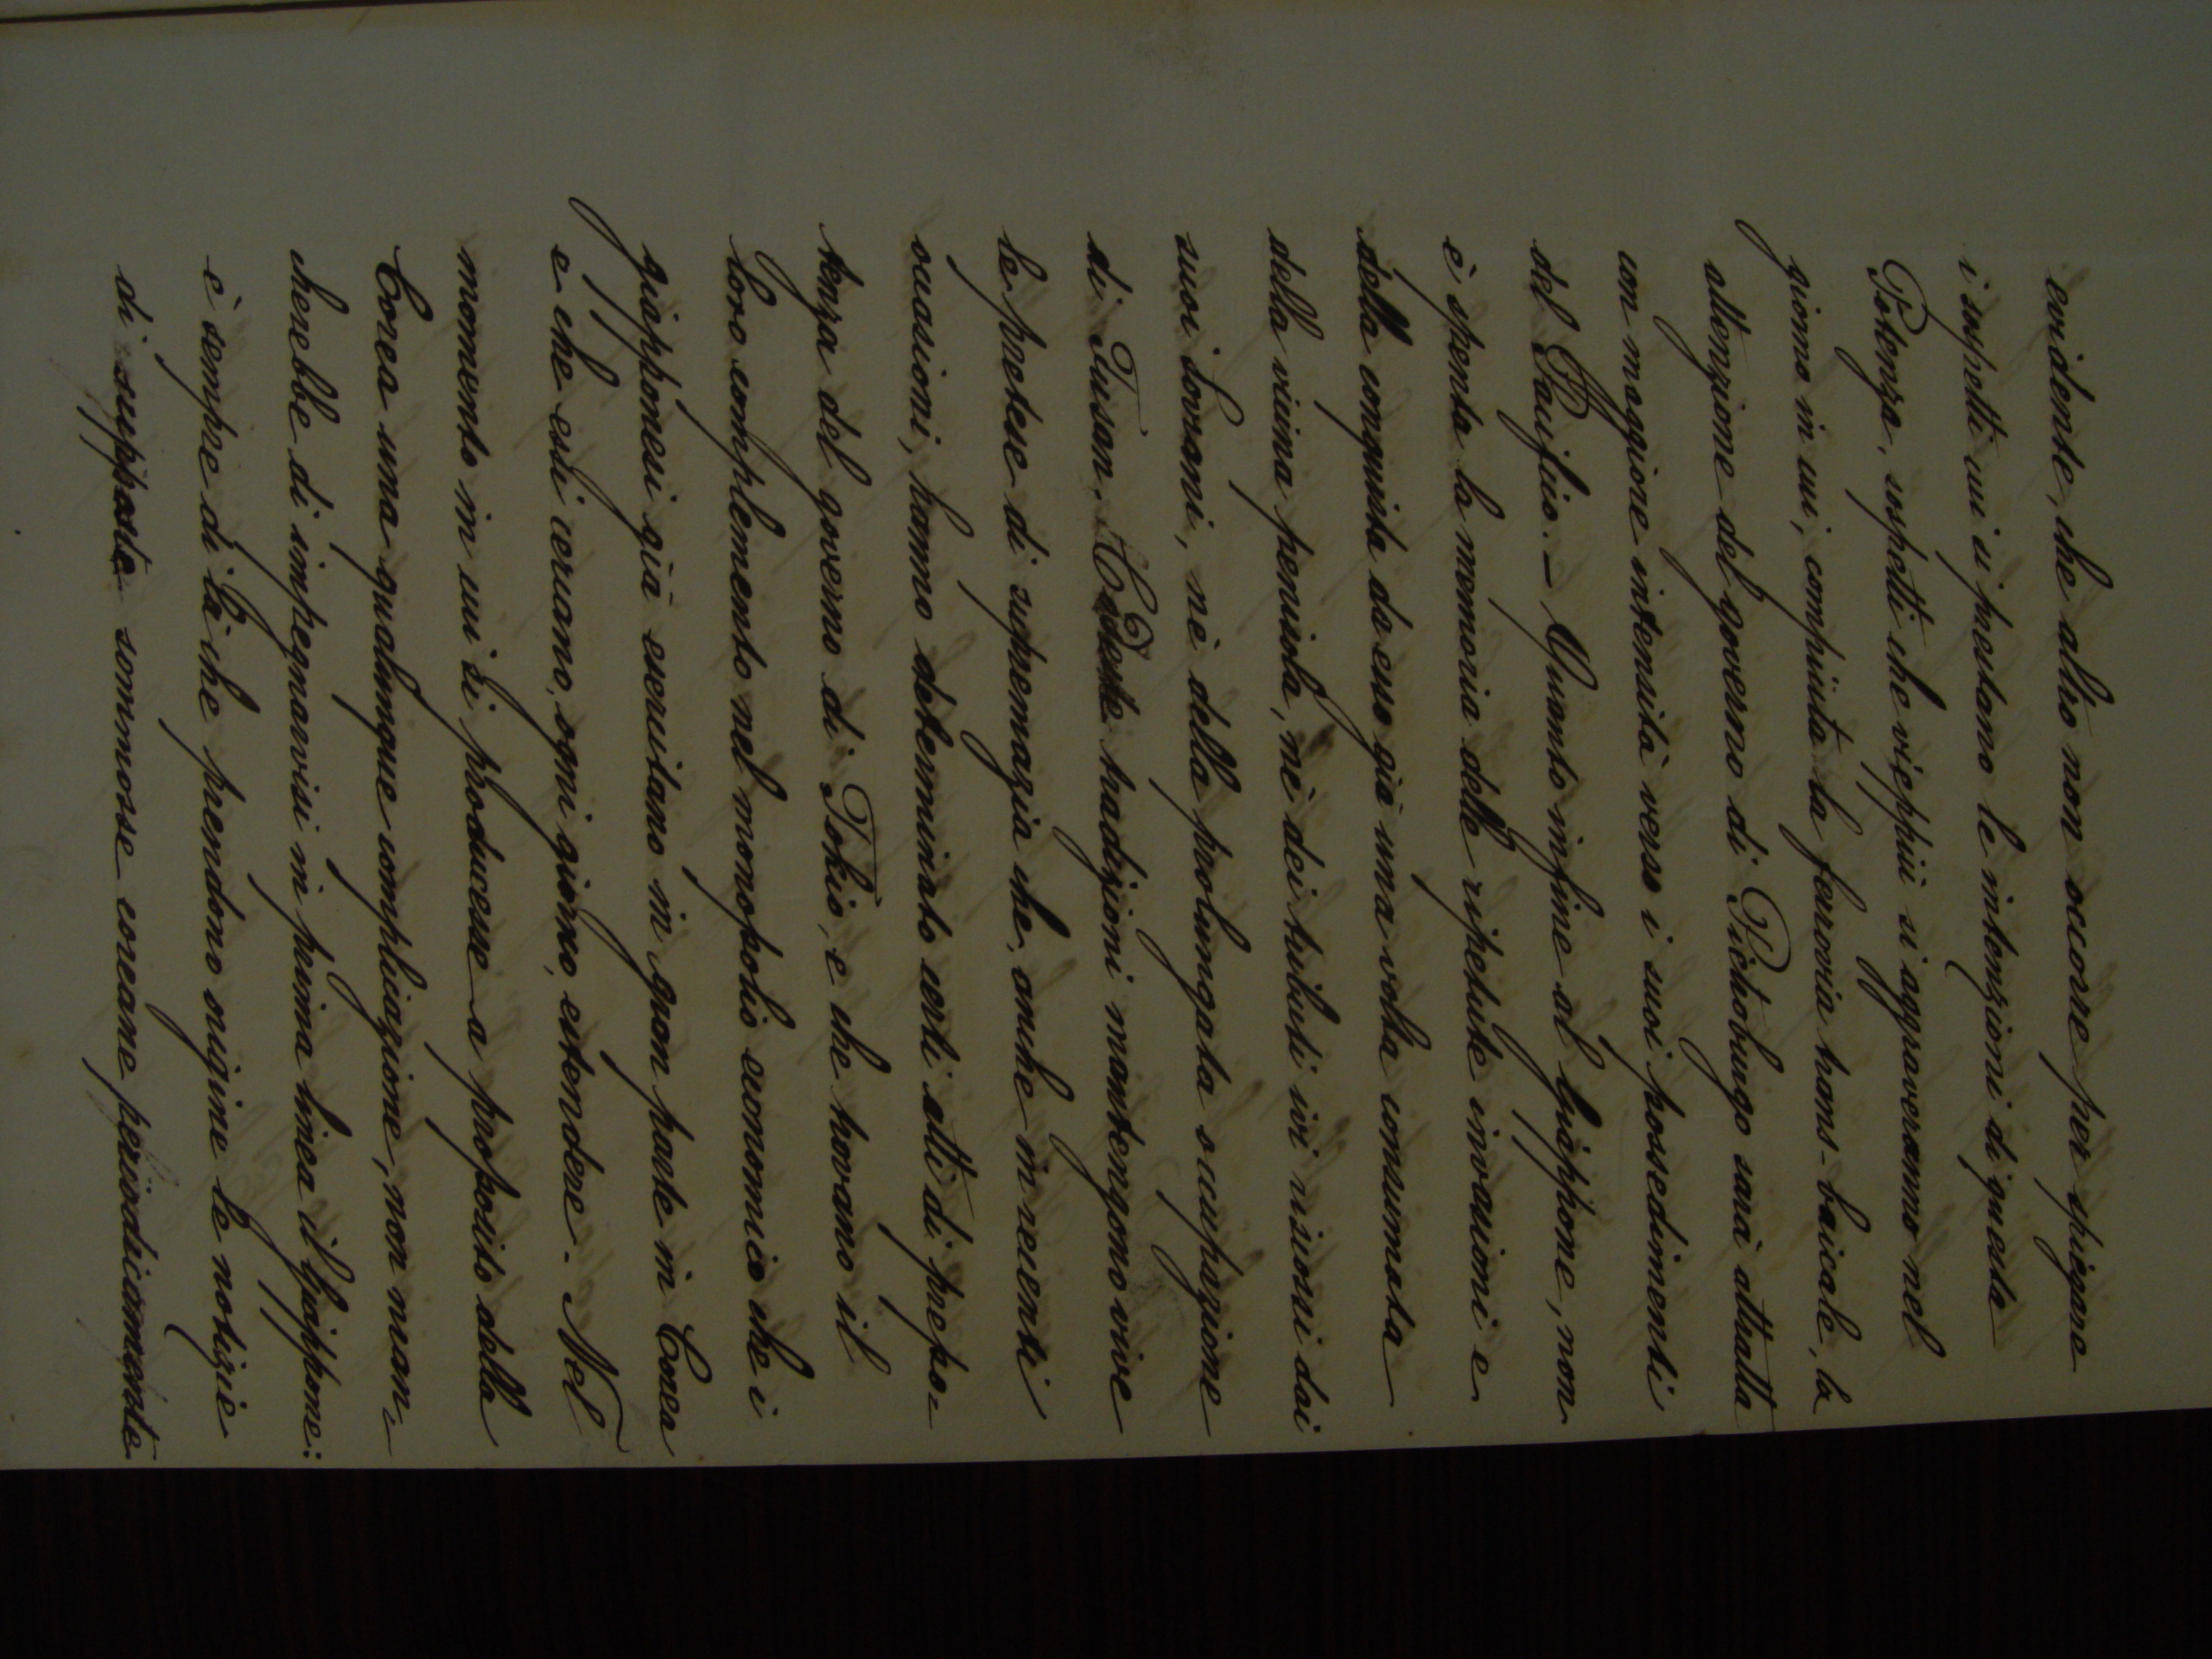 evidente, che altro non occorre per spiegare
i sospetti cui si prestano le intenzioni di questa
Potenza, sospetti che vieppiù si aggraveranno nel
giorno in cui, compiuta la ferrovia trans-baicale, la
attenzione del governo di Pietroburgo sarà attratta
con maggiore intensità verso i suoi possedimenti
del Pacifico. – Quanto infine al Giappone, non
è spenta la memoria delle ripetute invasioni e
della conquista da esso già una volta consumata
della vicina penisola, nè dei tributi ivi riscossi dai
suoi sovrani, nè della prolungata occupazione
di Fusan. Codeste tradizioni mantengono vive
le pretese di supremazia che, anche in recenti
occasioni, hanno determinato certi atti di prepo-
tenza del governo di Tokio, e che trovano il
loro complemento nel monopolio economico che i
giapponesi già esercitano in gran parte in Corea
e che essi cercano, ogni giorno, estendere. Nel
momento in cui si producesse a proposito della
Corea una qualunque complicazione, non man-
cherebbe di impegnarvisi in prima linea il Giappone:
è sempre di là che prendono origine le notizie
di supposte sommosse coreane periodicamente